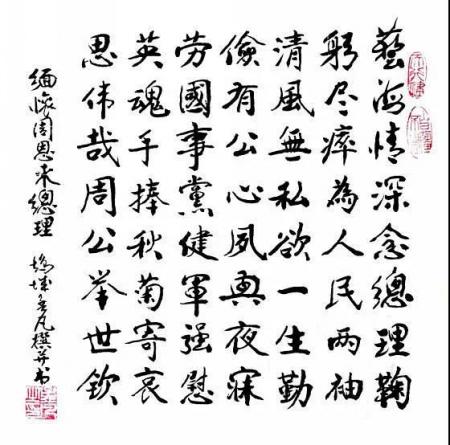 藝海情深念總理鞠
躬尽瘁為人民两袖
清風無私欲一生勤
儉有公心夙興夜寐
劳國事黨健軍强慰
英魂手捧秋菊寄哀
思伟哉周公举世钦
緬懷周恩来總理 城凡撰并书